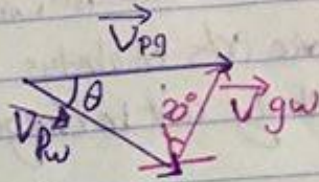 V⃗pg
θ
V⃗pw
20°
V⃗gw